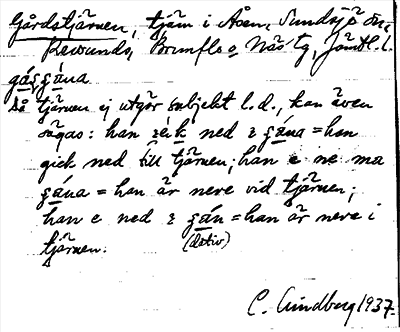 Gårdstjärnen, tjärn i Åsen, Sundsjö sn,
Revsunds, Brunflo o Näs tg, Jämtl. l.
gásʒána
Då tjärnen ej utgör subjekt l.d., kan även
sägas: han jék ned ɛ ʒána = han
gick ned till tjärnen; han e ne ma
ʒána = han är nere vid tjärnen;
han e ned ɛ ʒán = han är nere i
(dativ)
tjärnen.
C. Lindberg 1937.